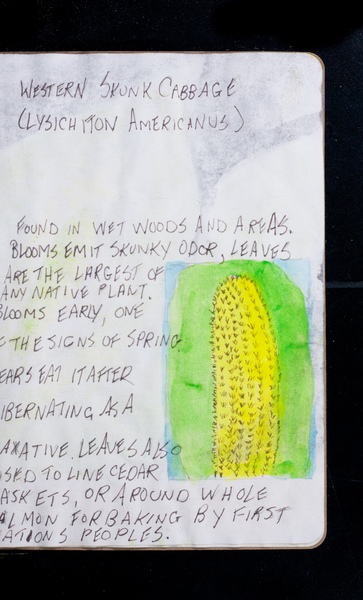 WESTERN SKUNK CABBAGE
(LYSICHITON AMERICANUS)
FOUND IN WET WOODS AND AREAS.
BLOOMS EMIT SKUNKY ODOR, LEAVES
ARE THE LARGEST OF
ANY NATIVE PLANT.
BLOOMS EARLY, ONE
THE SIGNS OF SPRING.
EARS EAT IT AFTER
IBERNATING AS A
AXATIVE. LEAVES ALSO
SED TO LINE CEDAR
ASKETS, OR AROUND WHOLE
ALMON FOR BAKING BY FIRST
ATIONS PEOPLES.